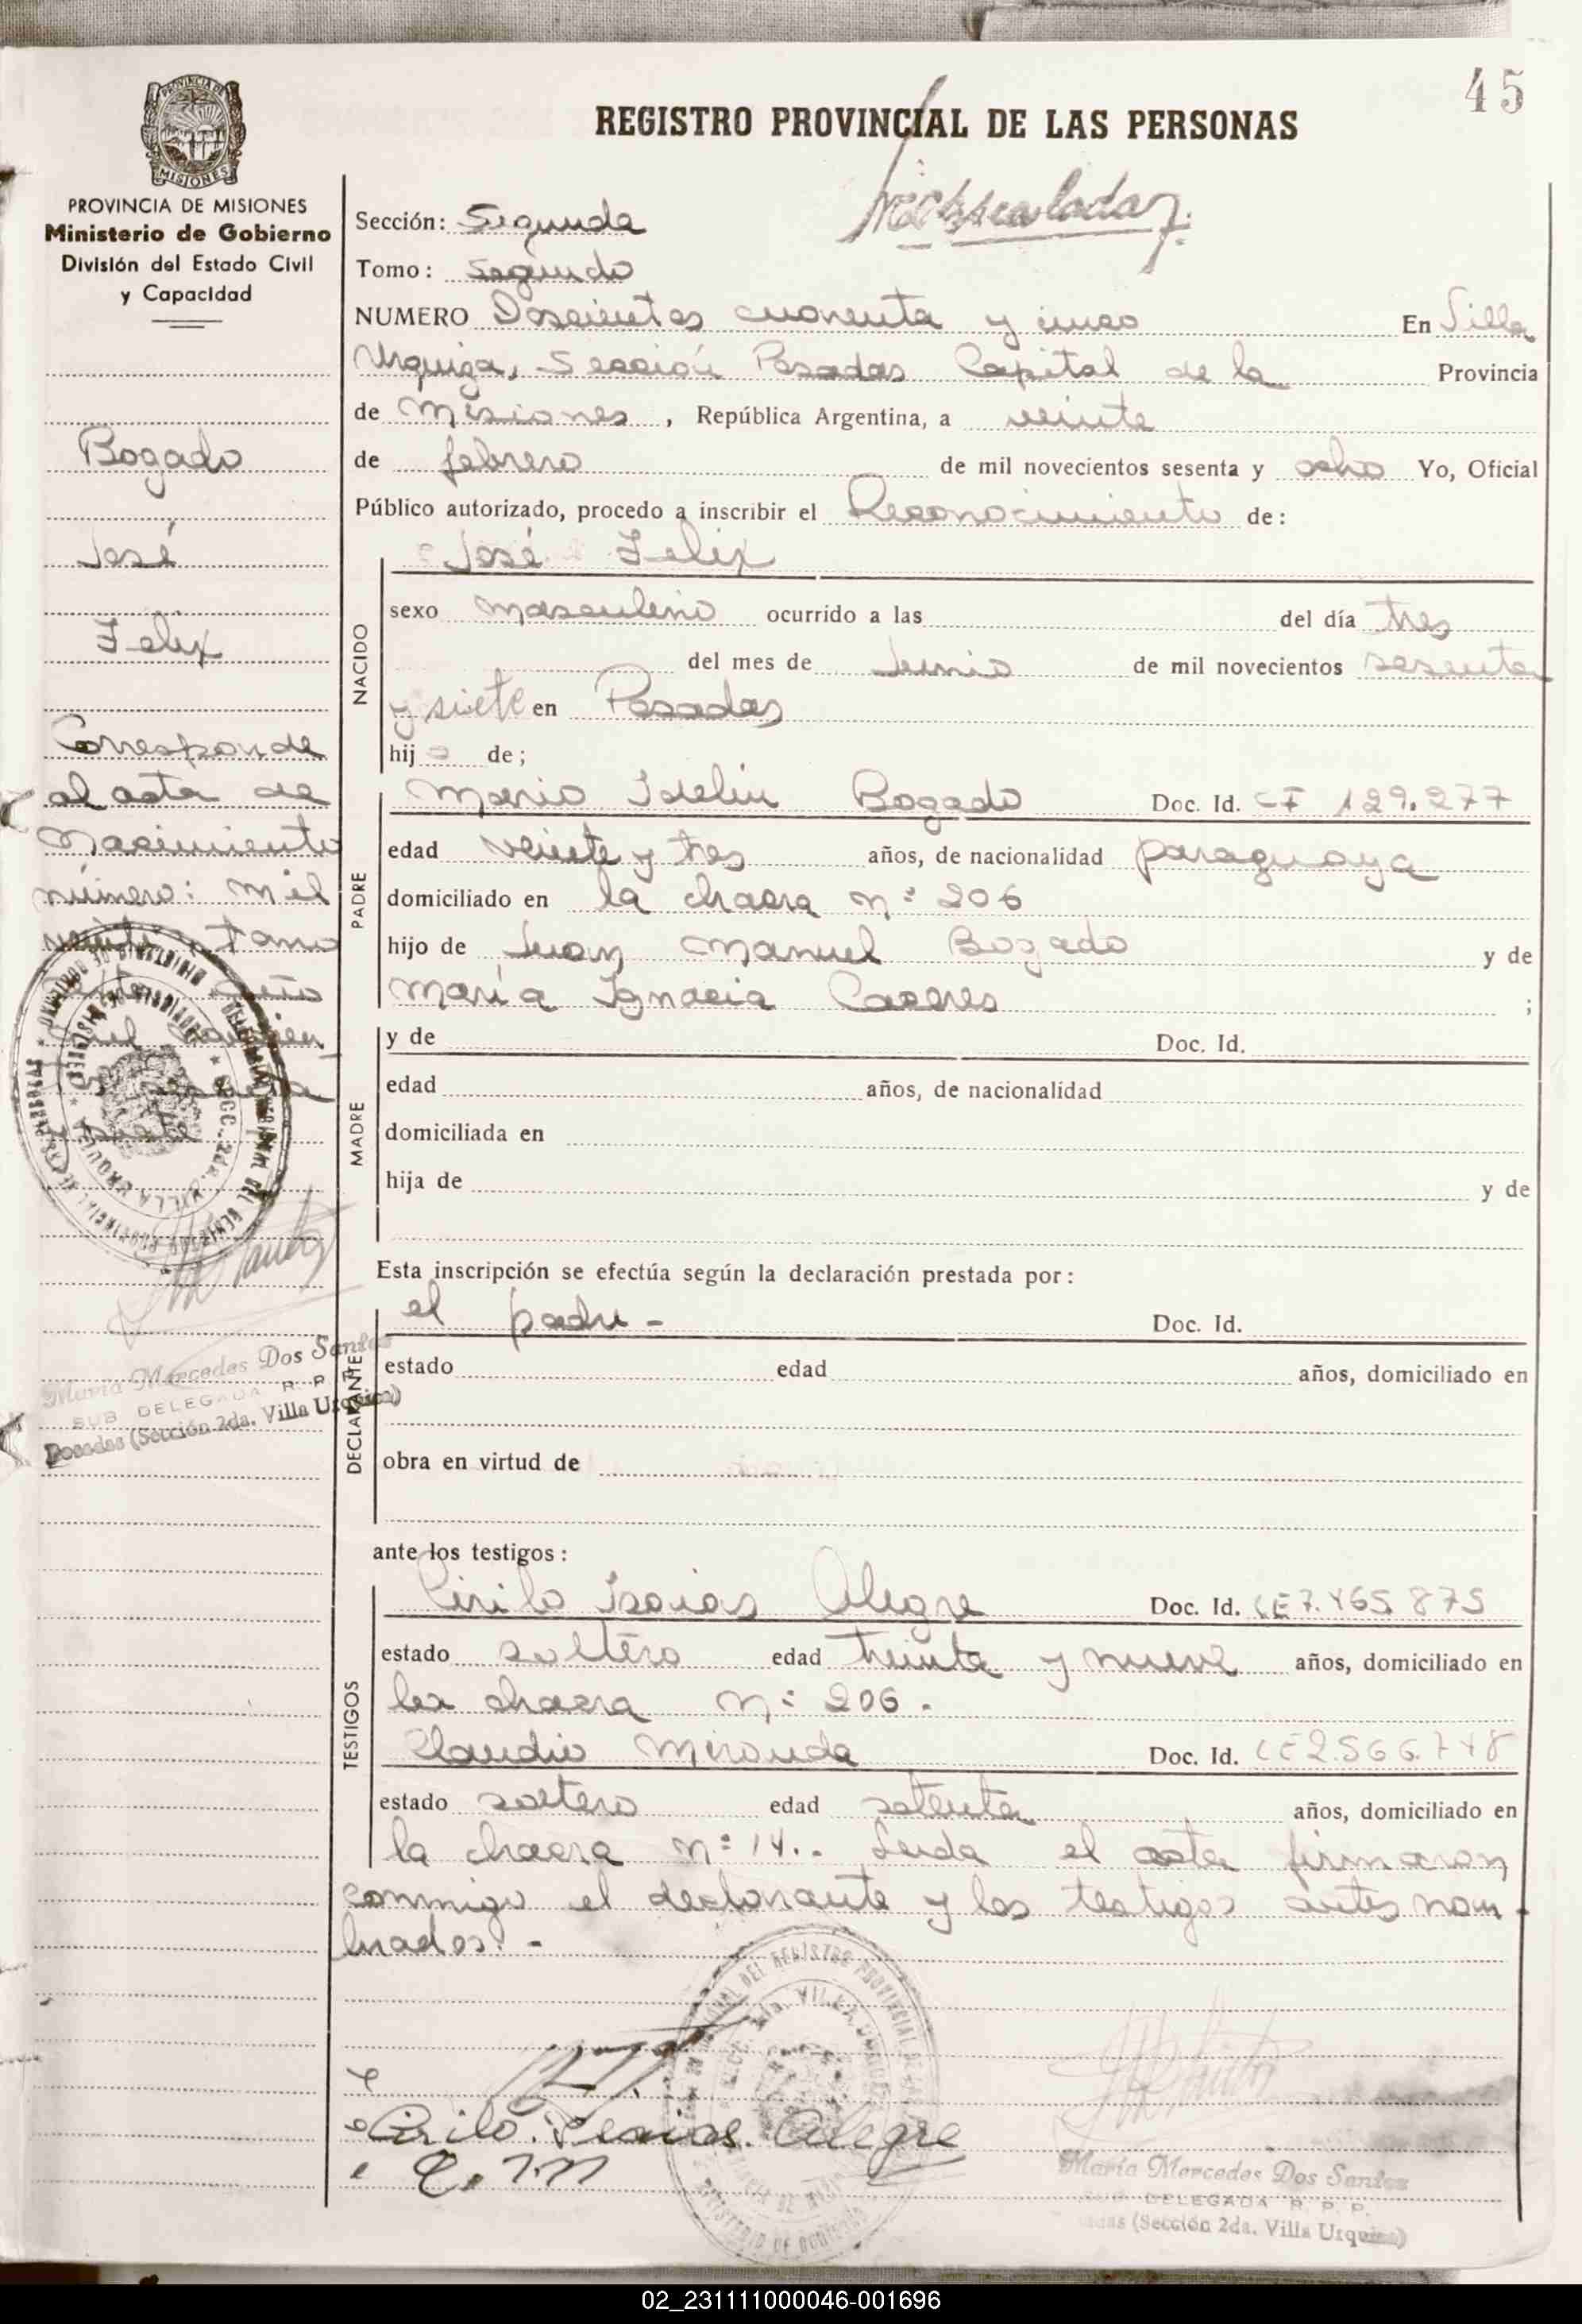 45
REGISTRO PROVINCIAL DE LAS PERSONAS
PROVINCIA DE
MISIONES
PROVINCIA DE MISIONES
Ministerio de Gobierno
División del Estado Civil
y Capacidad
Bogado
José
Felix
Corresponde
al acta de
Nacimiento
número: mil
tomo
año
mil
siete
María Mercedes Dos Santos
SUB DELEGADA R. P. P.
Posadas (Sección 2da. Villa Urquiza)
Sección: Segunda
Tomo: Segundo
NUMERO Doscientos cuarenta y cinco En Villa
Urquiza, Sección Posadas Capital de la Provincia
de Misiones, República Argentina, a veinte
de febrero de mil novecientos sesenta y ocho Yo, Oficial
Público autorizado, procedo a inscribir el Reconocimiento de:
José Felix
NACIDO
sexo masculino ocurrido a las del día tres
del mes de Junio de mil novecientos sesenta
y siete en Posadas
hijo de;
PADRE
Mario Idelin Bogado Doc. Id. CI 129.277
edad veinte y tres años, de nacionalidad paraguaya
domiciliado en la chacra nº 206
hijo de Juan Manuel Bogado y de
María Ignacia Caceres ;
MADRE
y de Doc. Id.
edad años, de nacionalidad
domiciliada en
hija de y de
Esta inscripción se efectúa según la declaración prestada por:
DECLARANTE
el padre - Doc. Id.
estado edad años, domiciliado en
obra en virtud de
ante los testigos:
TESTIGOS
Cirilo Isaias Alegre Doc. Id. LE 7.465.875
estado soltero edad treinta y nueve años, domiciliado en
la chacra nº 206.
Claudio Miranda Doc. Id. LE 2.566.748
estado soltero edad setenta años, domiciliado en
la chacra nº 14.. Leida el acta firmaron
conmigo el declarante y los testigos antes nom-
brados. -
Cirilo. Isaias. Alegre
C. M
María Mercedes Dos Santos
SUB DELEGADA R. P. P.
(Sección 2da. Villa Urquiza)
02_231111000046-001696